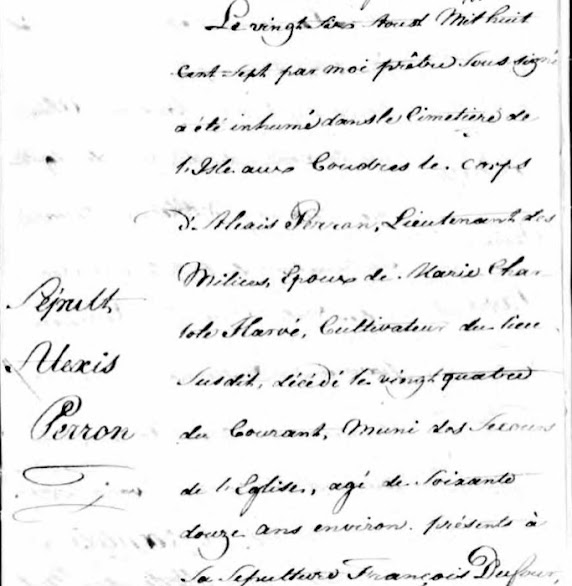 Le vingt six Aoust Mil huit
cent-sept par moi prêtre Sous signé
a été inhumé dans le Cimetière de
l'Isle aux Coudres le corps
d'Alexis Perron, Lieutenant des
Milices, Epoux de Marie Char-
lote Harvé, Cultivateur du lieu
Susdit, décédé le vingt quatre
du Courant, Muni des Secours
de l'Eglise, agé de Soixante
douze ans environ. présents à
Sa Sepulture François Dufour,
Sépult.
Alexis
Perron